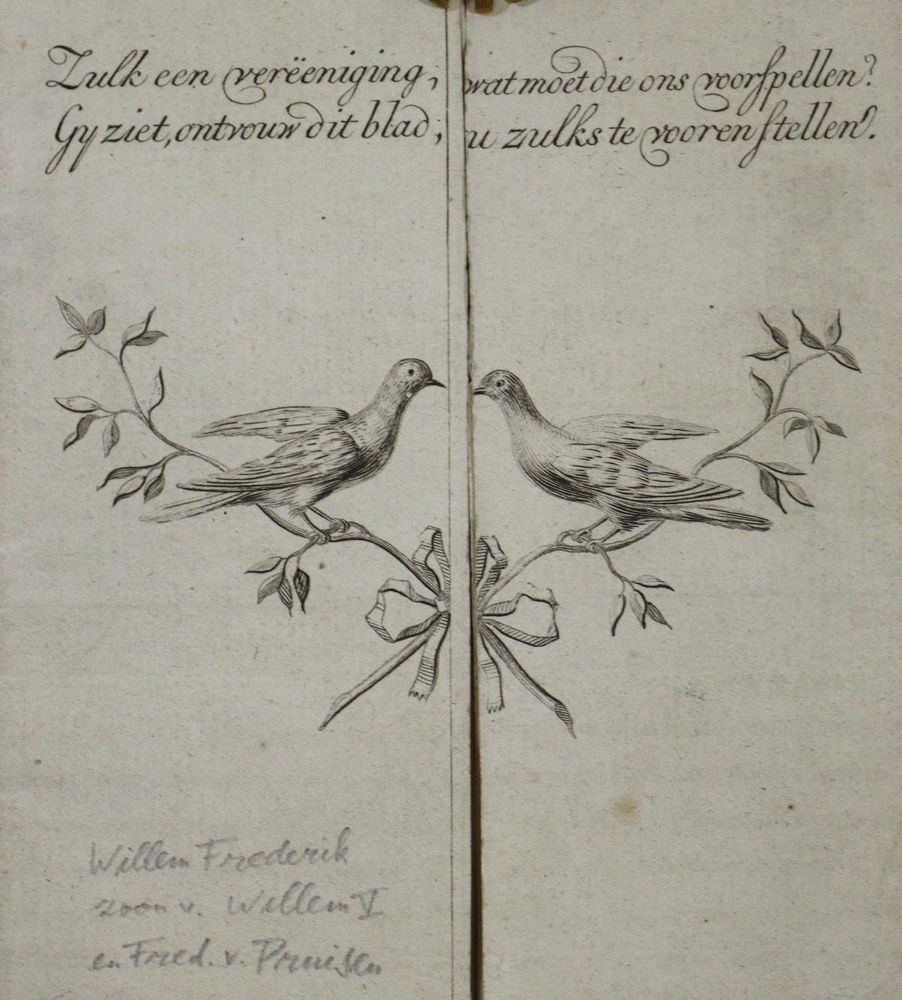 Zulk een verëeniging, wat moet die ons voorspellen?
Gy ziet, ontvouw dit blad, u zulks te vooren stellen.
Willem Frederik
zoon v. Willem V
en Fred. v. Pruisen